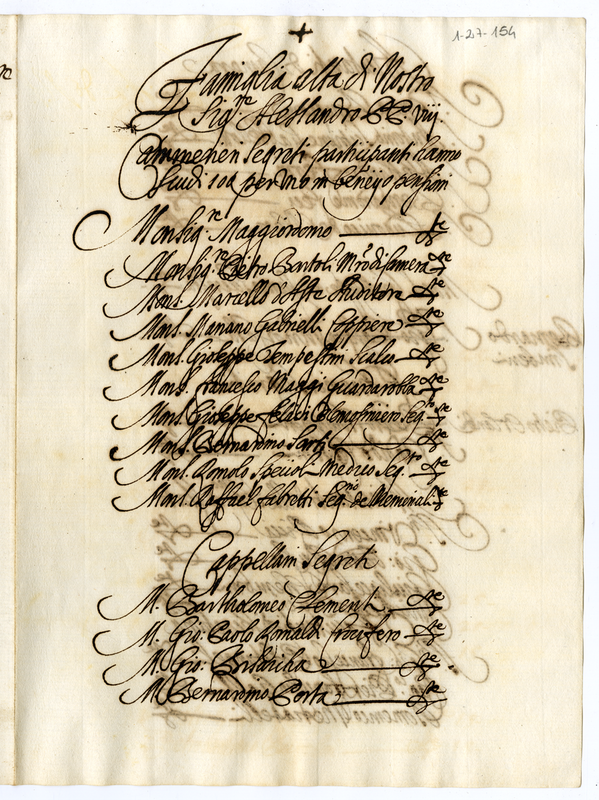 1-27-154
Famiglia alta di Nostro
Sig.re Alessandro PP. viij.
Cammerieri Segreti participanti hanno
Scudi 100 per Uno in pensioni
Monsig.re Maggiordomo
Monsig.re Pietro Bartoli Mro di Camera
Mons. Marcello d'Aste Auditore
Mons. Mariano Gabrielli Coppiere
Mons. Gioseppe Tempestini Scalco
Mons. Francesco Maggi Guardarobba
Mons. Gioseppe Felici Elemosiniero Seg.to
Mons. Bernardino
Mons. Romolo Spetioli Medico Seg.to
Mons. Raffael Fabretti Seg.rio de Memoriali
Cappellani Segreti
M. Bartholomeo Clementi
M. Gio: Paolo Romaldi Crocifero
M. Gio:
M. Bernardino Porta